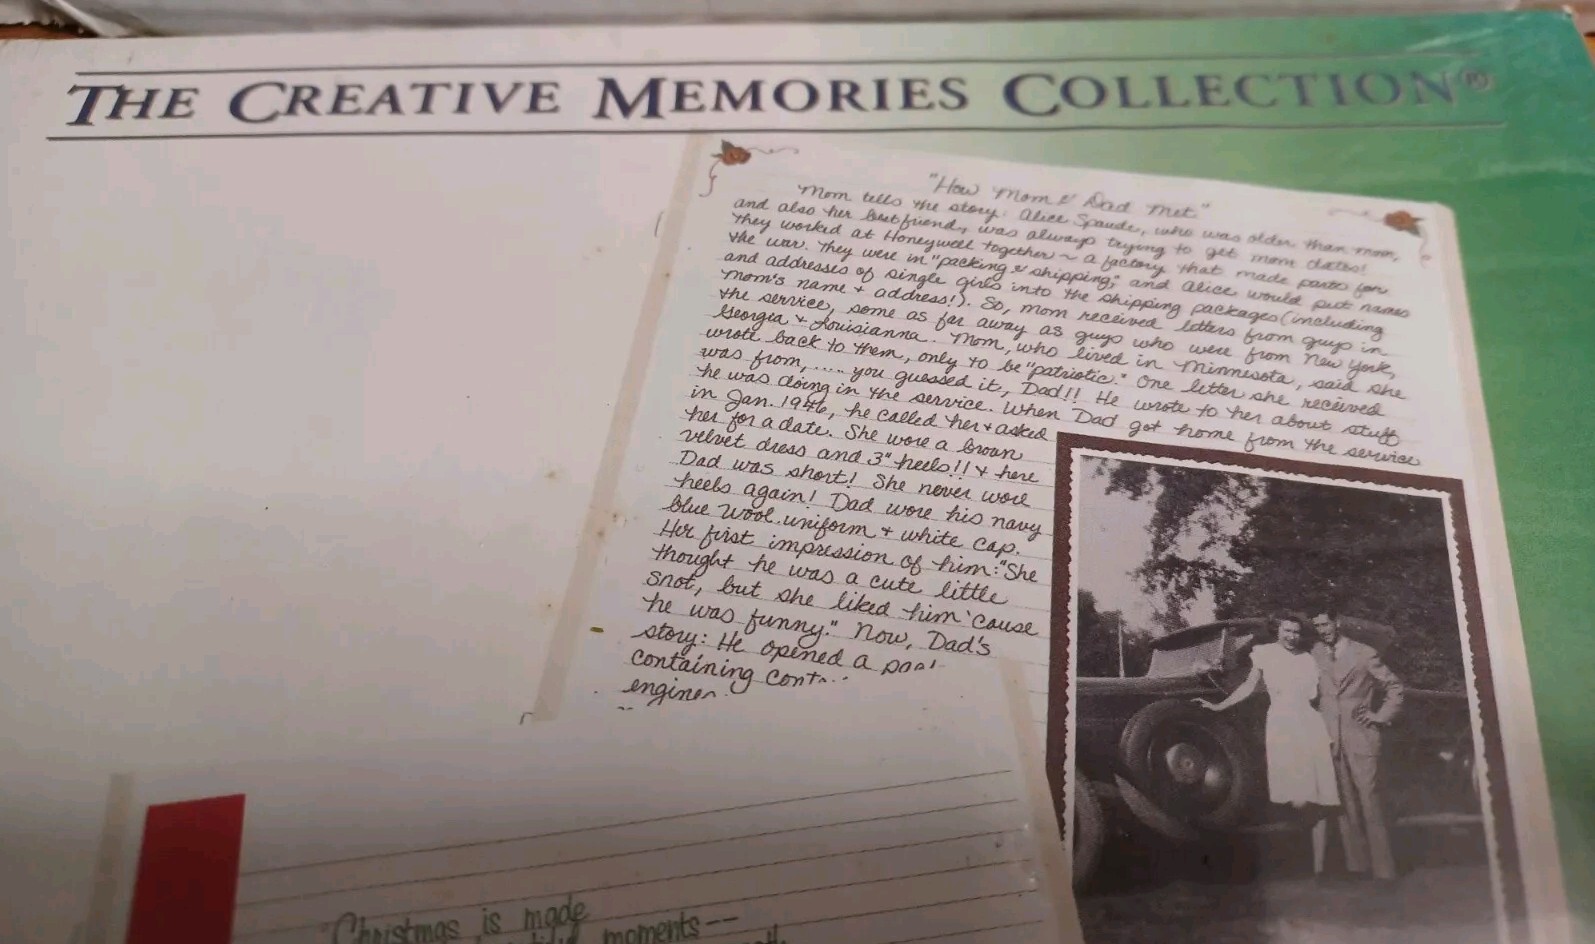 THE CREATIVE MEMORIES COLLECTION®
"How Mom & Dad Met"
Mom tells the story: Alice Spaude, who was older than mom,
and also her best friend, was always trying to get mom dates!
They worked at Honeywell together ~ a factory that made parts for
the war. They were in "packing & shipping," and Alice would put names
and addresses of single girls into the shipping packages (including
mom's name + address!). So, mom received letters from guys in
the service, some as far away as guys who were from New York,
Georgia & Louisianna. Mom, who lived in Minnesota, said she
wrote back to them, only to be "patriotic." One letter she received
was from, ..... you guessed it, Dad!! He wrote to her about stuff
he was doing in the service. When Dad got home from the service
in Jan. 1946, he called her & asked
her for a date. She wore a brown
velvet dress and 3" heels!! & here
Dad was short! She never wore
heels again! Dad wore his navy
blue wool uniform & white cap.
Her first impression of him: "She
thought he was a cute little
snot, but she liked him 'cause
he was funny." Now, Dad's
story: He opened a
containing
Christmas is made
moments--